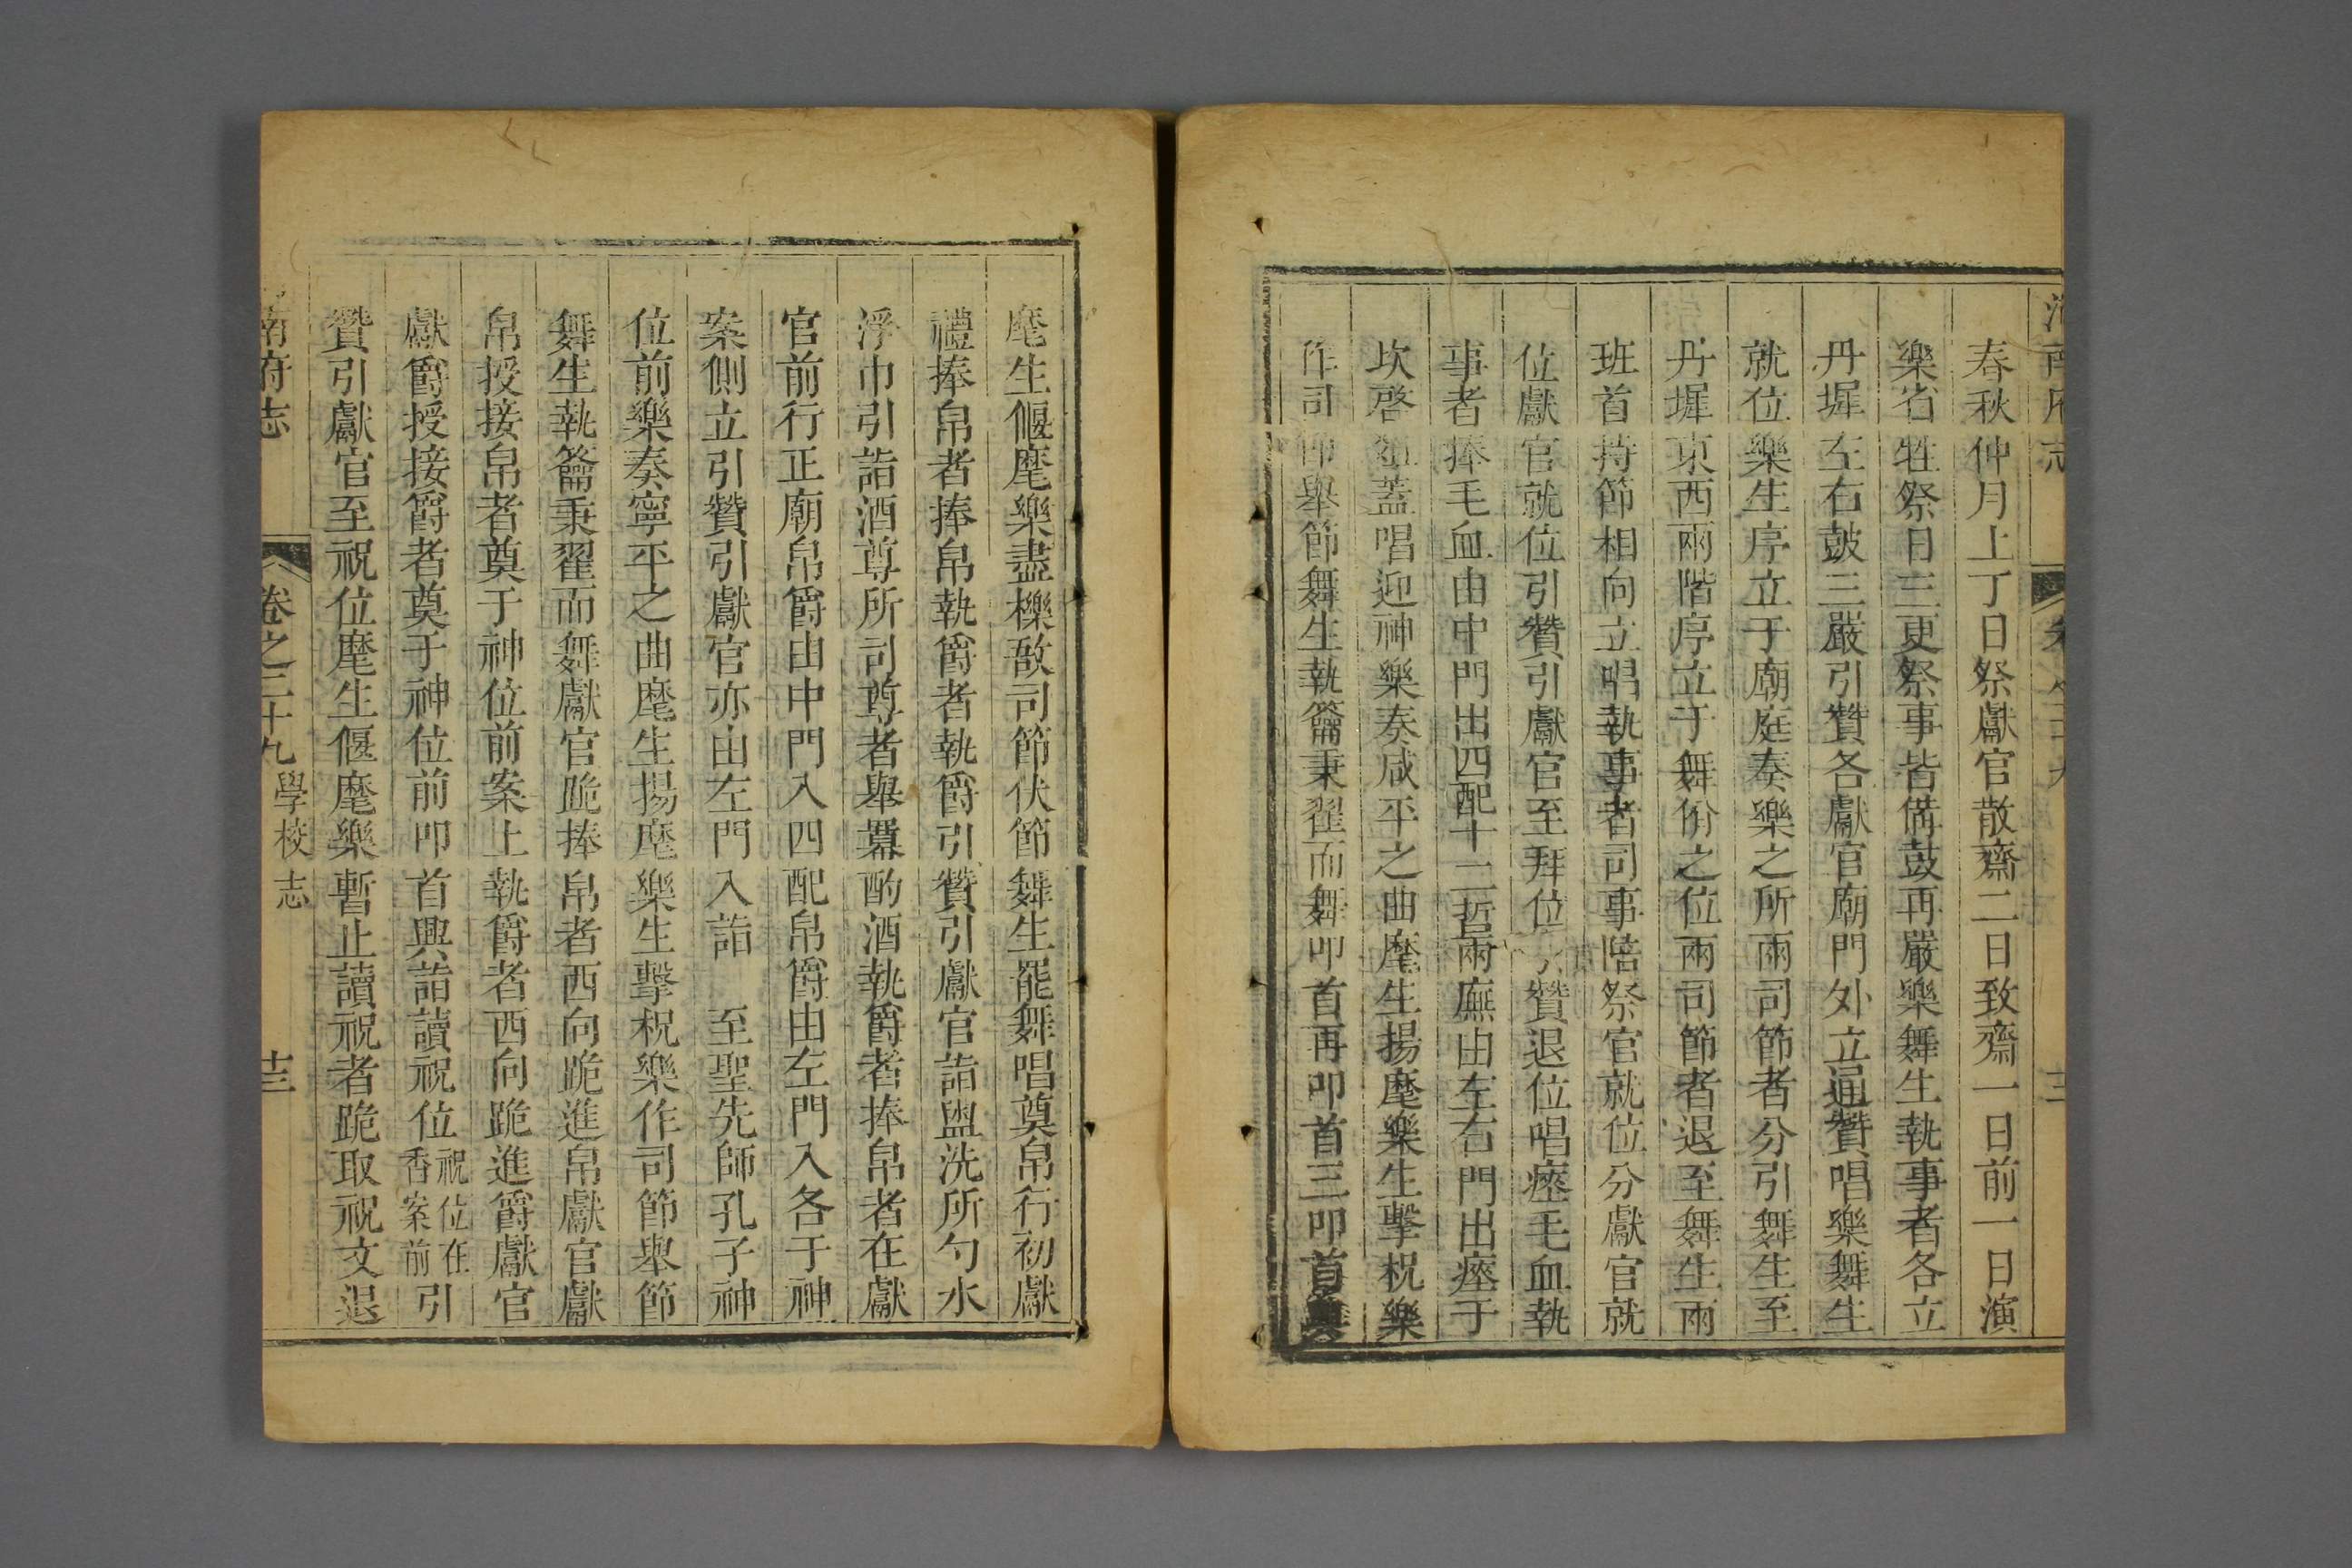 春秋仲月上丁日祭獻官散齋二日致齋一日前一日演
樂省牲祭日三更祭事皆備鼓再嚴樂舞生執事者各立
丹墀左右鼓三嚴引贊各獻官廟門外立通贊唱樂舞生
就位樂生序立于廟庭奏樂之所兩司節者分引舞生至
丹墀東西兩階序立于舞佾之位兩司節者退至舞生兩
班首持節相向立唱執事者司事陪祭官就位分獻官就
位獻官就位引贊引獻官至拜位贊退位唱瘞毛血執
事者捧毛血由中門出四配十二哲兩廡由左右門出瘞于
坎啓俎蓋唱迎神樂奏咸平之曲麾生揚麾樂生擊柷樂
作司節舉節舞生執籥秉翟而舞叩首再叩首三叩首興
麾生偃麾樂盡櫟敔司節伏節舞生罷舞唱奠帛行初獻
禮捧帛者捧帛執爵者執爵引贊引獻官詣盥洗所勺水
淨巾引詣酒尊所司尊者舉羃酌酒執爵者捧帛者在獻
官前行正廟帛爵由中門入四配帛爵由左門入各于神
案側立引贊引獻官亦由左門入詣 至聖先師孔子神
位前樂奏寧平之曲麾生揚麾樂生擊柷樂作司節舉節
舞生執籥秉翟而舞獻官跪捧帛者西向跪進帛獻官獻
帛授接帛者奠于神位前案上執爵者西向跪進爵獻官
獻爵授接爵者奠于神位前叩首興詣讀祝位祝位在香案前引
贊引獻官至祝位麾生偃麾樂暫止讀祝者跪取祝文退
南府志 卷之二十九 學校志 十三